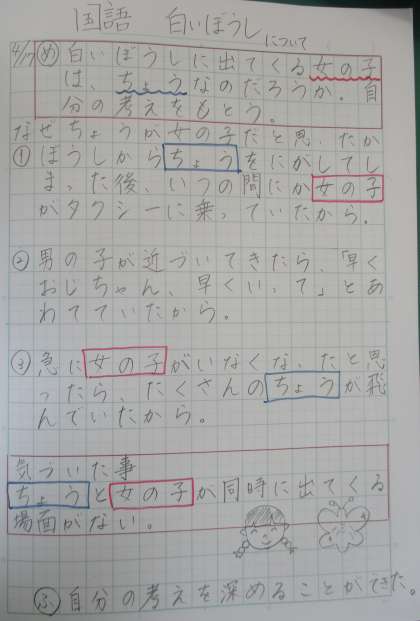 国語 白いぼうしについて
4/17 め 白いぼうしに出てくる女の子
は、ちょうなのだろうか。自
分の考えをもとう。
なぜちょうが女の子だと思ったか
① ぼうしからちょうをにがしてし
まった後、いつの間にか女の子
がタクシーに乗っていたから。
② 男の子が近づいてきたら、「早く
おじちゃん、早くいって」とあ
わてていたから。
③ 急に女の子がいなくなったと思
ったら、たくさんのちょうが飛
んでいたから。
気づいた事
ちょうと女の子が同時に出てくる
場面がない。
ふ 自分の考えを深めることができた。